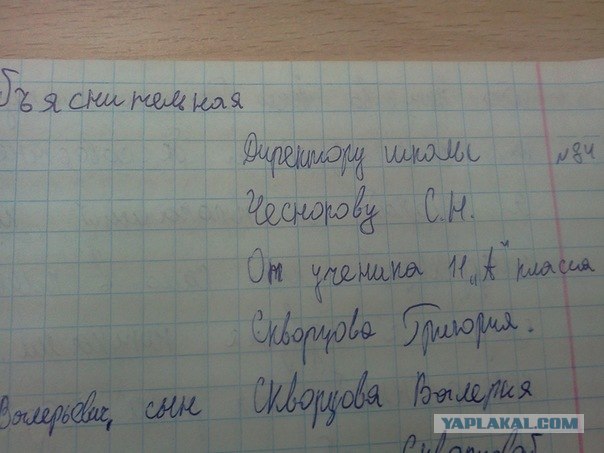 бъяснительная
Директору школы №84
Чеснокову С.Н.
От ученика 11 „А" класса
Скворцова Григория.
Валерьевич, сын Скворцова Валерия
YAPLAKAL.COM